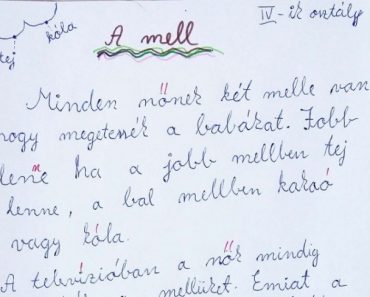 IV-ik osztály
kóla
tej
A mell
Minden nőnek két melle van
hogy megetessék a babákat. Jobb
lenne ha a jobb mellben tej
lenne, a bal mellben kakaó
vagy kóla.
A televízióban a nők mindig
mellüket. Emiat a